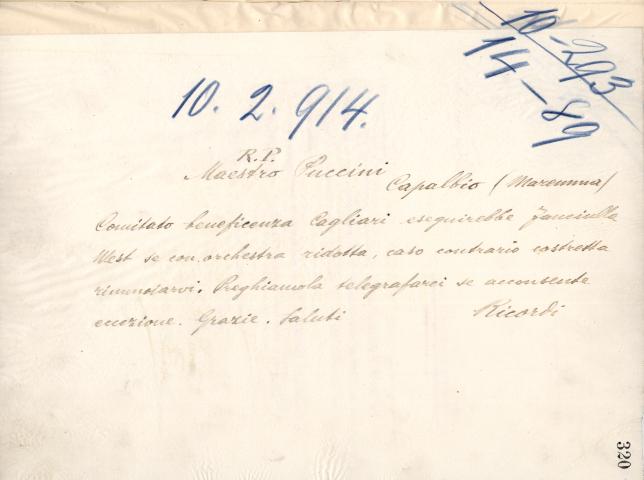 10-293
14-89
10. 2. 914.
R.P.
Maestro Puccini
Capalbio (Maremma)
Comitato beneficenza Cagliari eseguirebbe Fanciulla
West se con orchestra ridotta, caso contrario costretta
rinunziarvi. Preghiamola telegrafarci se acconsente
eccezione. Grazie. Saluti Ricordi
320